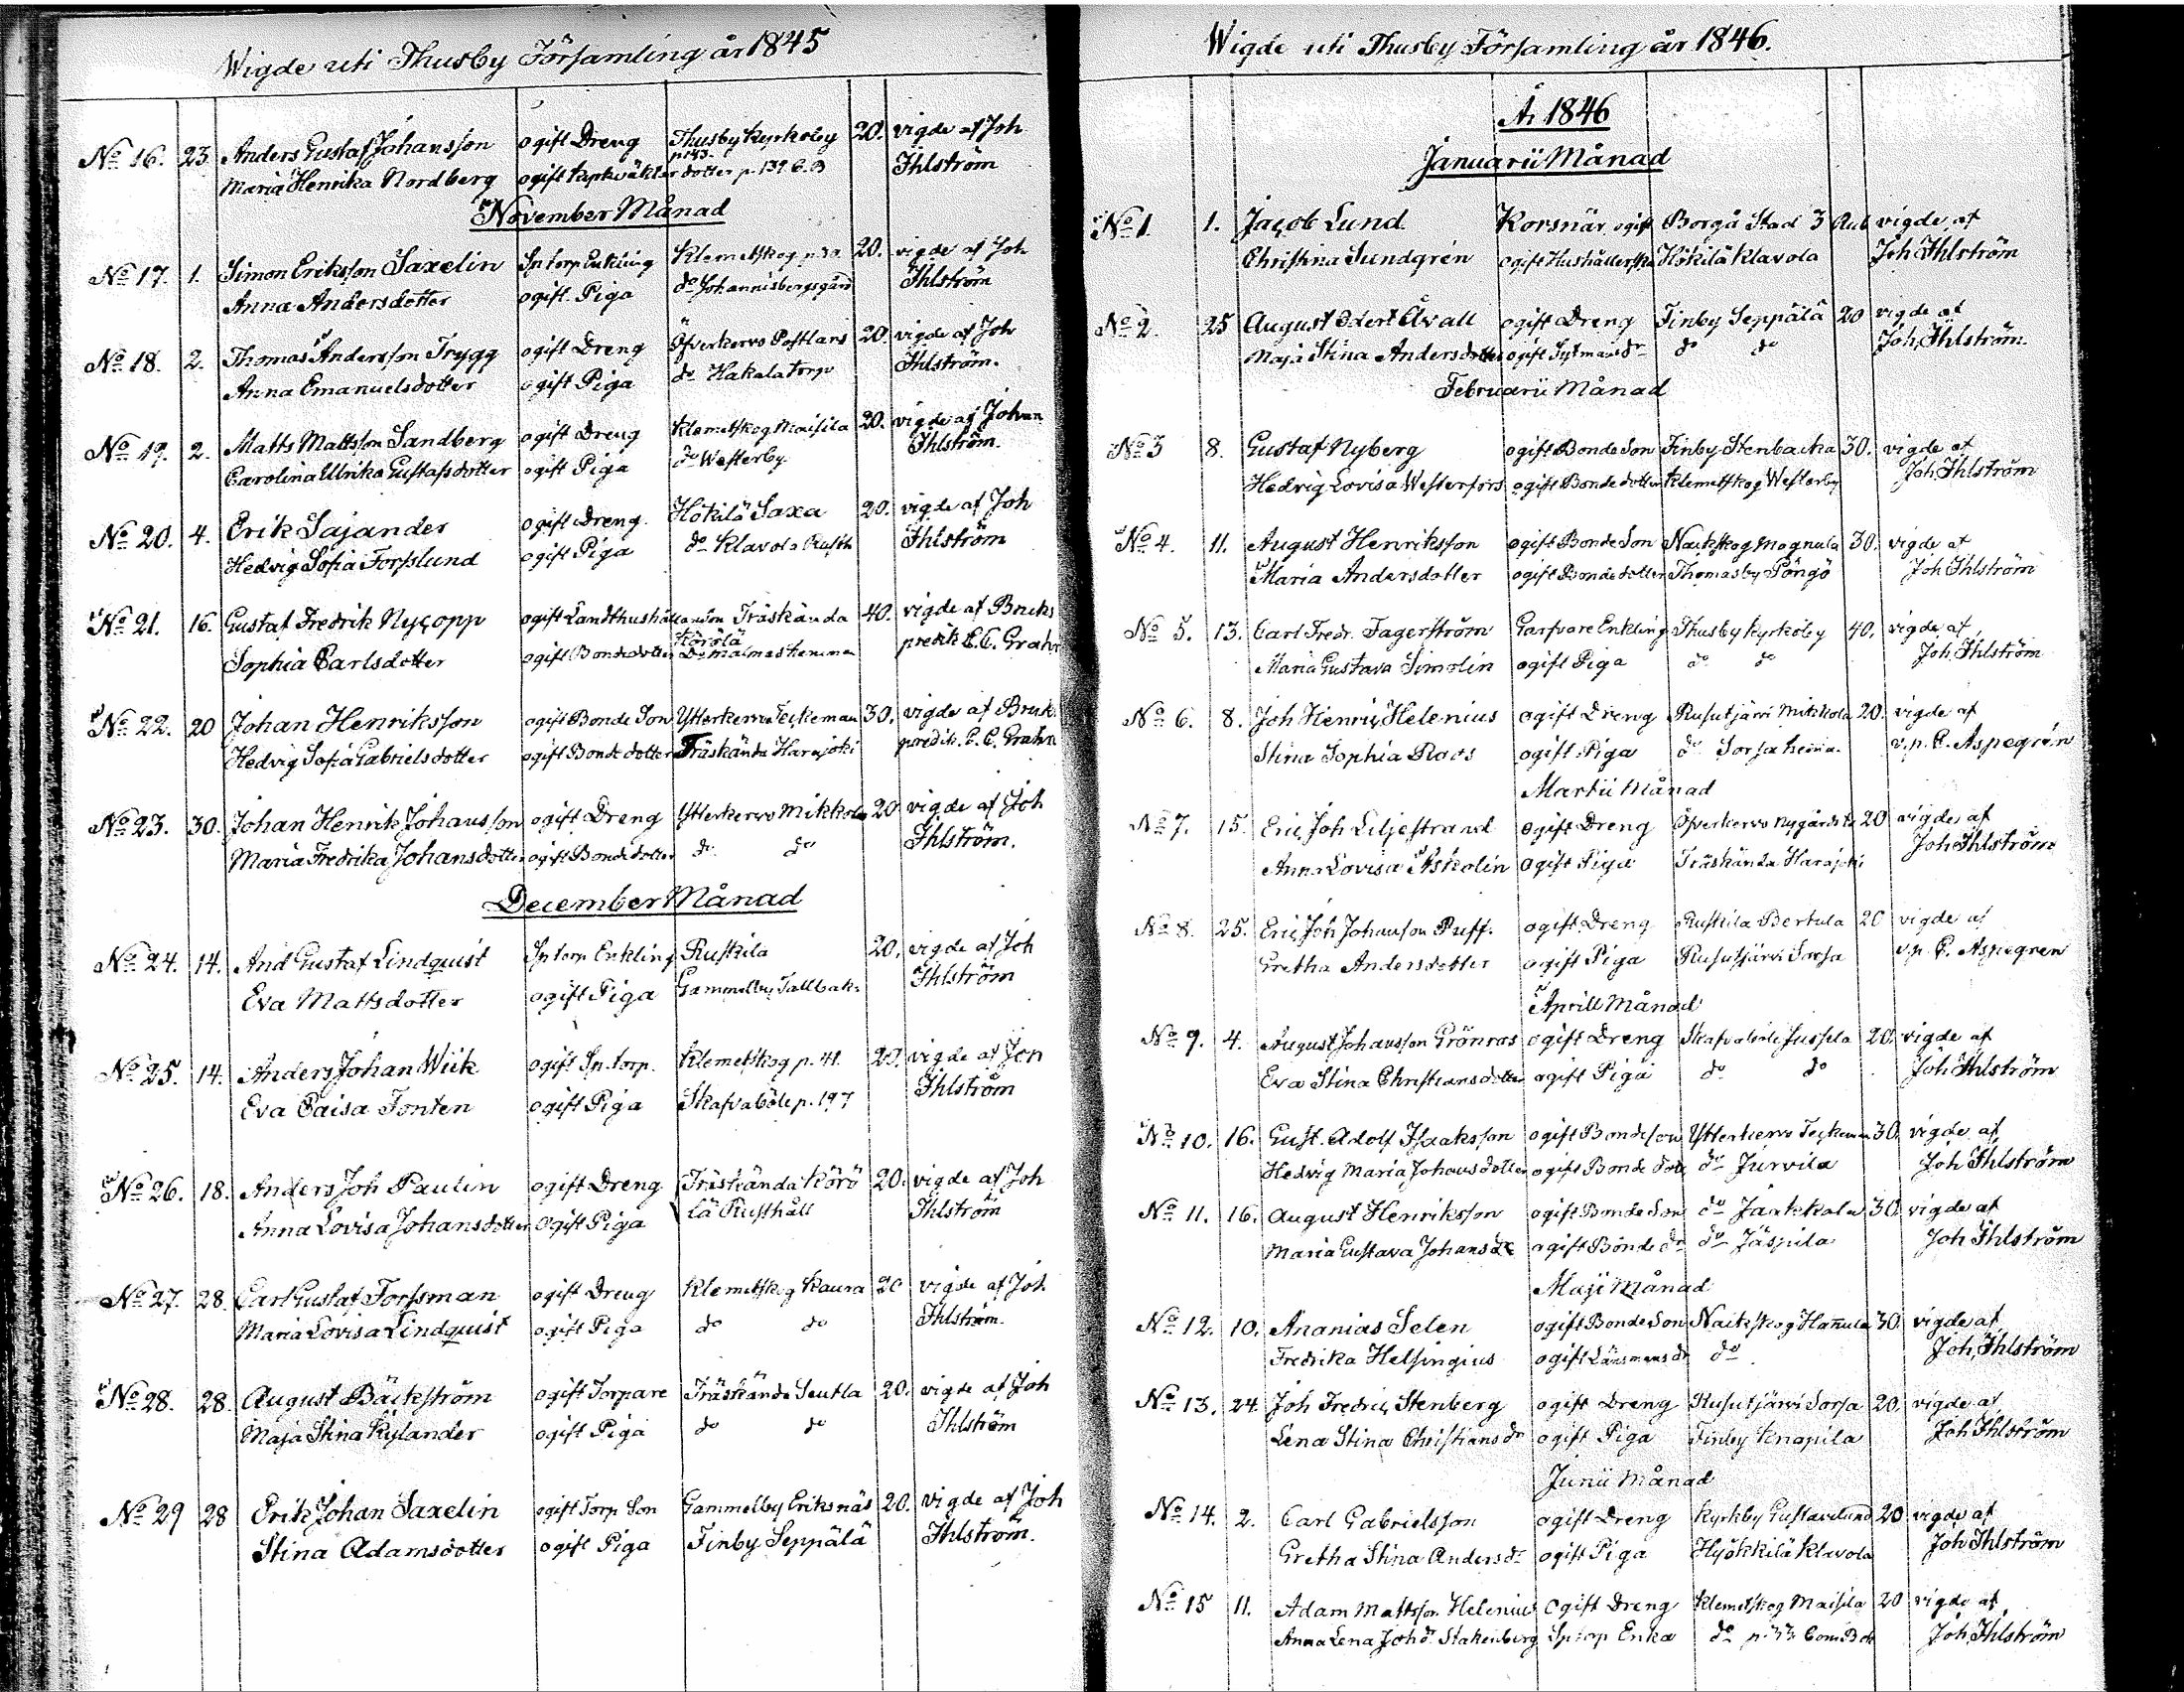 Wigde uti Thusby Församling år 1845
No 16. 23. Anders Gustaf Johansson ogift Dreng Thusby Kyrkoby 20. vigde af Joh
p 143.
Maria Henrika Nordberg ogift Kyrkväktar dotter p. 139 C.B Ihlström
November Månad
No 17. 1. Simon Eriksson Saxelin Sp torp Enkling Klemetskog 20. vigde af Joh
Anna Andersdotter ogift Piga do Johannisbergsgård Ihlström
No 18. 2. Thomas Andersson Trygg ogift Dreng Öfverkervo Postlars 20. vigde af Joh
Anna Emanuelsdotter ogift Piga do Hakala torp Ihlström.
No 19. 2. Matts Mattsson Sandberg ogift Dreng Klemetskog Maisila 20. vigde af Johan
Carolina Ulrika Gustafsdotter ogift Piga do Westerby Ihlström.
No 20. 4. Erik Sajander ogift Dreng. Hökilä Saxa 20. vigde af Joh
Hedvig Sofia Forsslund ogift Piga do Klavola Rusth Ihlström
No 21. 16. Gustaf Fredrik Nycopp ogift Landthushållar son Träskända 40. vigde af Bruks
Körölä
Sophia Carlsdotter ogift Bondedotter Do Malmas hemman predik C.C. Grahn
No 22. 20 Johan Henriksson ogift Bonde Son Ytterkervo Teckeman 30. vigde af Bruk.
Hedvig Sofia Gabrielsdotter ogift Bonde dotter Träskända Harajoki predik. C.C. Grahn
No 23. 30. Johan Henrik Johansson ogift Dreng Ytterkervo Mikkola 20 vigde af Joh
Maria Fredrika Johansdotter ogift Bonde dotter do do Ihlström.
December Månad
No 24. 14. And Gustaf Lindquist Sp torp Enkling Ruskila 20. vigde af Joh
Eva Mattsdotter ogift Piga Gammelby Tallbak. Ihlström
No 25. 14. Anders Johan Wiik ogift Sp. torp. Klemetskog p. 41. 20. vigde af Joh
Eva Caisa Tonten ogift Piga Skafvaböle p. 197 Ihlström
No 26. 18. Anders Joh Paulin ogift Dreng Träskända Körö 20. vigde af Joh
Anna Lovisa Johansdotter ogift Piga lä Rusthåll Ihlström
No 27. 28. Carl Gustaf Forssman ogift Dreng Klemetskog Kaura 20 vigde af Joh
Maria Lovisa Lindquist ogift Piga do do Ihlström.
No 28. 28. August Bäckström ogift Torpare Träskända Seutla 20. vigde af Joh
Maja Stina Kylander ogift Piga do do Ihlström
No 29 28 Erik Johan Saxelin ogift Torp Son Gammelby Eriksnäs 20. vigde af Joh
Stina Adamsdotter ogift Piga Finby Seppälä Ihlström.
Wigde uti Thusby Församling år 1846.
År 1846
Januarii Månad
No 1. 1. Jacob Lund Korsnär. ogift Borgå Stad 3 Rub vigde af
Christina Sundgrén ogift Hushållerska Hökilä Klavola Joh Ihlström
No 2. 25 August Edert Åvall ogift Dreng Finby Seppälä 20 vigde af
Maja Stina Andersdotter ogift Sytmans dr do do Joh, Ihlström.
Februarii Månad
No 3 8. Gustaf Nyberg ogift Bonde Son Finby Stenbacka 30. vigde af
Hedvig Lovisa Westerfors ogift Bonde dotter Klemetskog Westerby Joh, Ihlström
No 4. 11. August Henriksson ogift Bonde Son Nackskog Mognula 30. vigde af
Maria Andersdotter ogift Bonde dotter Thomasby Pöngö Joh Ihlström
No 5. 13. Carl Fredr. Fagerström Garfvare Enkling Thusby Kyrkoby 40. vigde af
Maria Gustava Simolin ogift Piga do do Joh, Ihlström
No 6. 8. Joh Henric Helenius ogift Dreng Rusutjärvi Mikkola 20. vigde af
Stina Sophia Roos ogift Piga do Sorsa v.p. C. Aspegrén
Martii Månad
No 7. 15. Eric Joh Liljestrand ogift Dreng Öfverkervo Nygårds 20 vigde af
Anna Lovisa Askolin ogift Piga Träskända Harajoki Joh Ihlström
No 8. 25. Eric Joh Johansson Puff. ogift Dreng Ruskila Bertula 20 vigde af
Gretha Andersdotter ogift Piga Rusutjärvi Sorsa v.p. C. Aspegren
Aprill Månad
No 9. 4. August Johansson Grönros ogift Dreng Skafvaböle Jussila 20. vigde af
Eva Stina Christiansdotter ogift Piga do do Joh Ihlström
No 10. 16. Gust. Adolf Isaksson ogift Bondeson Ytterkervo Teckeman 30. vigde af
Hedvig Maria Johansdotter ogift Bonde dotr do Jurvila Joh Ihlström
No 11. 16. August Henriksson ogift Bonde Son do Jaakkola 30. vigde af
Maria Gustava Johansdr ogift Bonde dr do Jäspila Joh Ihlström
Maji Månad
No 12. 10. Ananias Selen ogift Bonde Son Nackskog Hannula 30. vigde af
Fredrika Helsingius ogift Länsmans dr do Joh, Ihlström
No 13. 24. Joh Fredric Stenberg ogift Dreng Rusutjärvi Sorsa 20. vigde af
Lena Stina Christians dr ogift Piga Finby Knapila Joh Ihlström
Junii Månad
No 14. 2. Carl Gabrielsson ogift Dreng Kyrkby Gustavelund 20 vigde af
Gretha Stina Anders dr ogift Piga Hyökkilä Klavola Joh Ihlström
No 15 11. Adam Mattsson Helenius ogift Dreng Klemetskog Maisila 20 vigde af
Anna Lena Joh dr Stakenberg Sp torp Enka do Com. Bok Joh, Ihlström